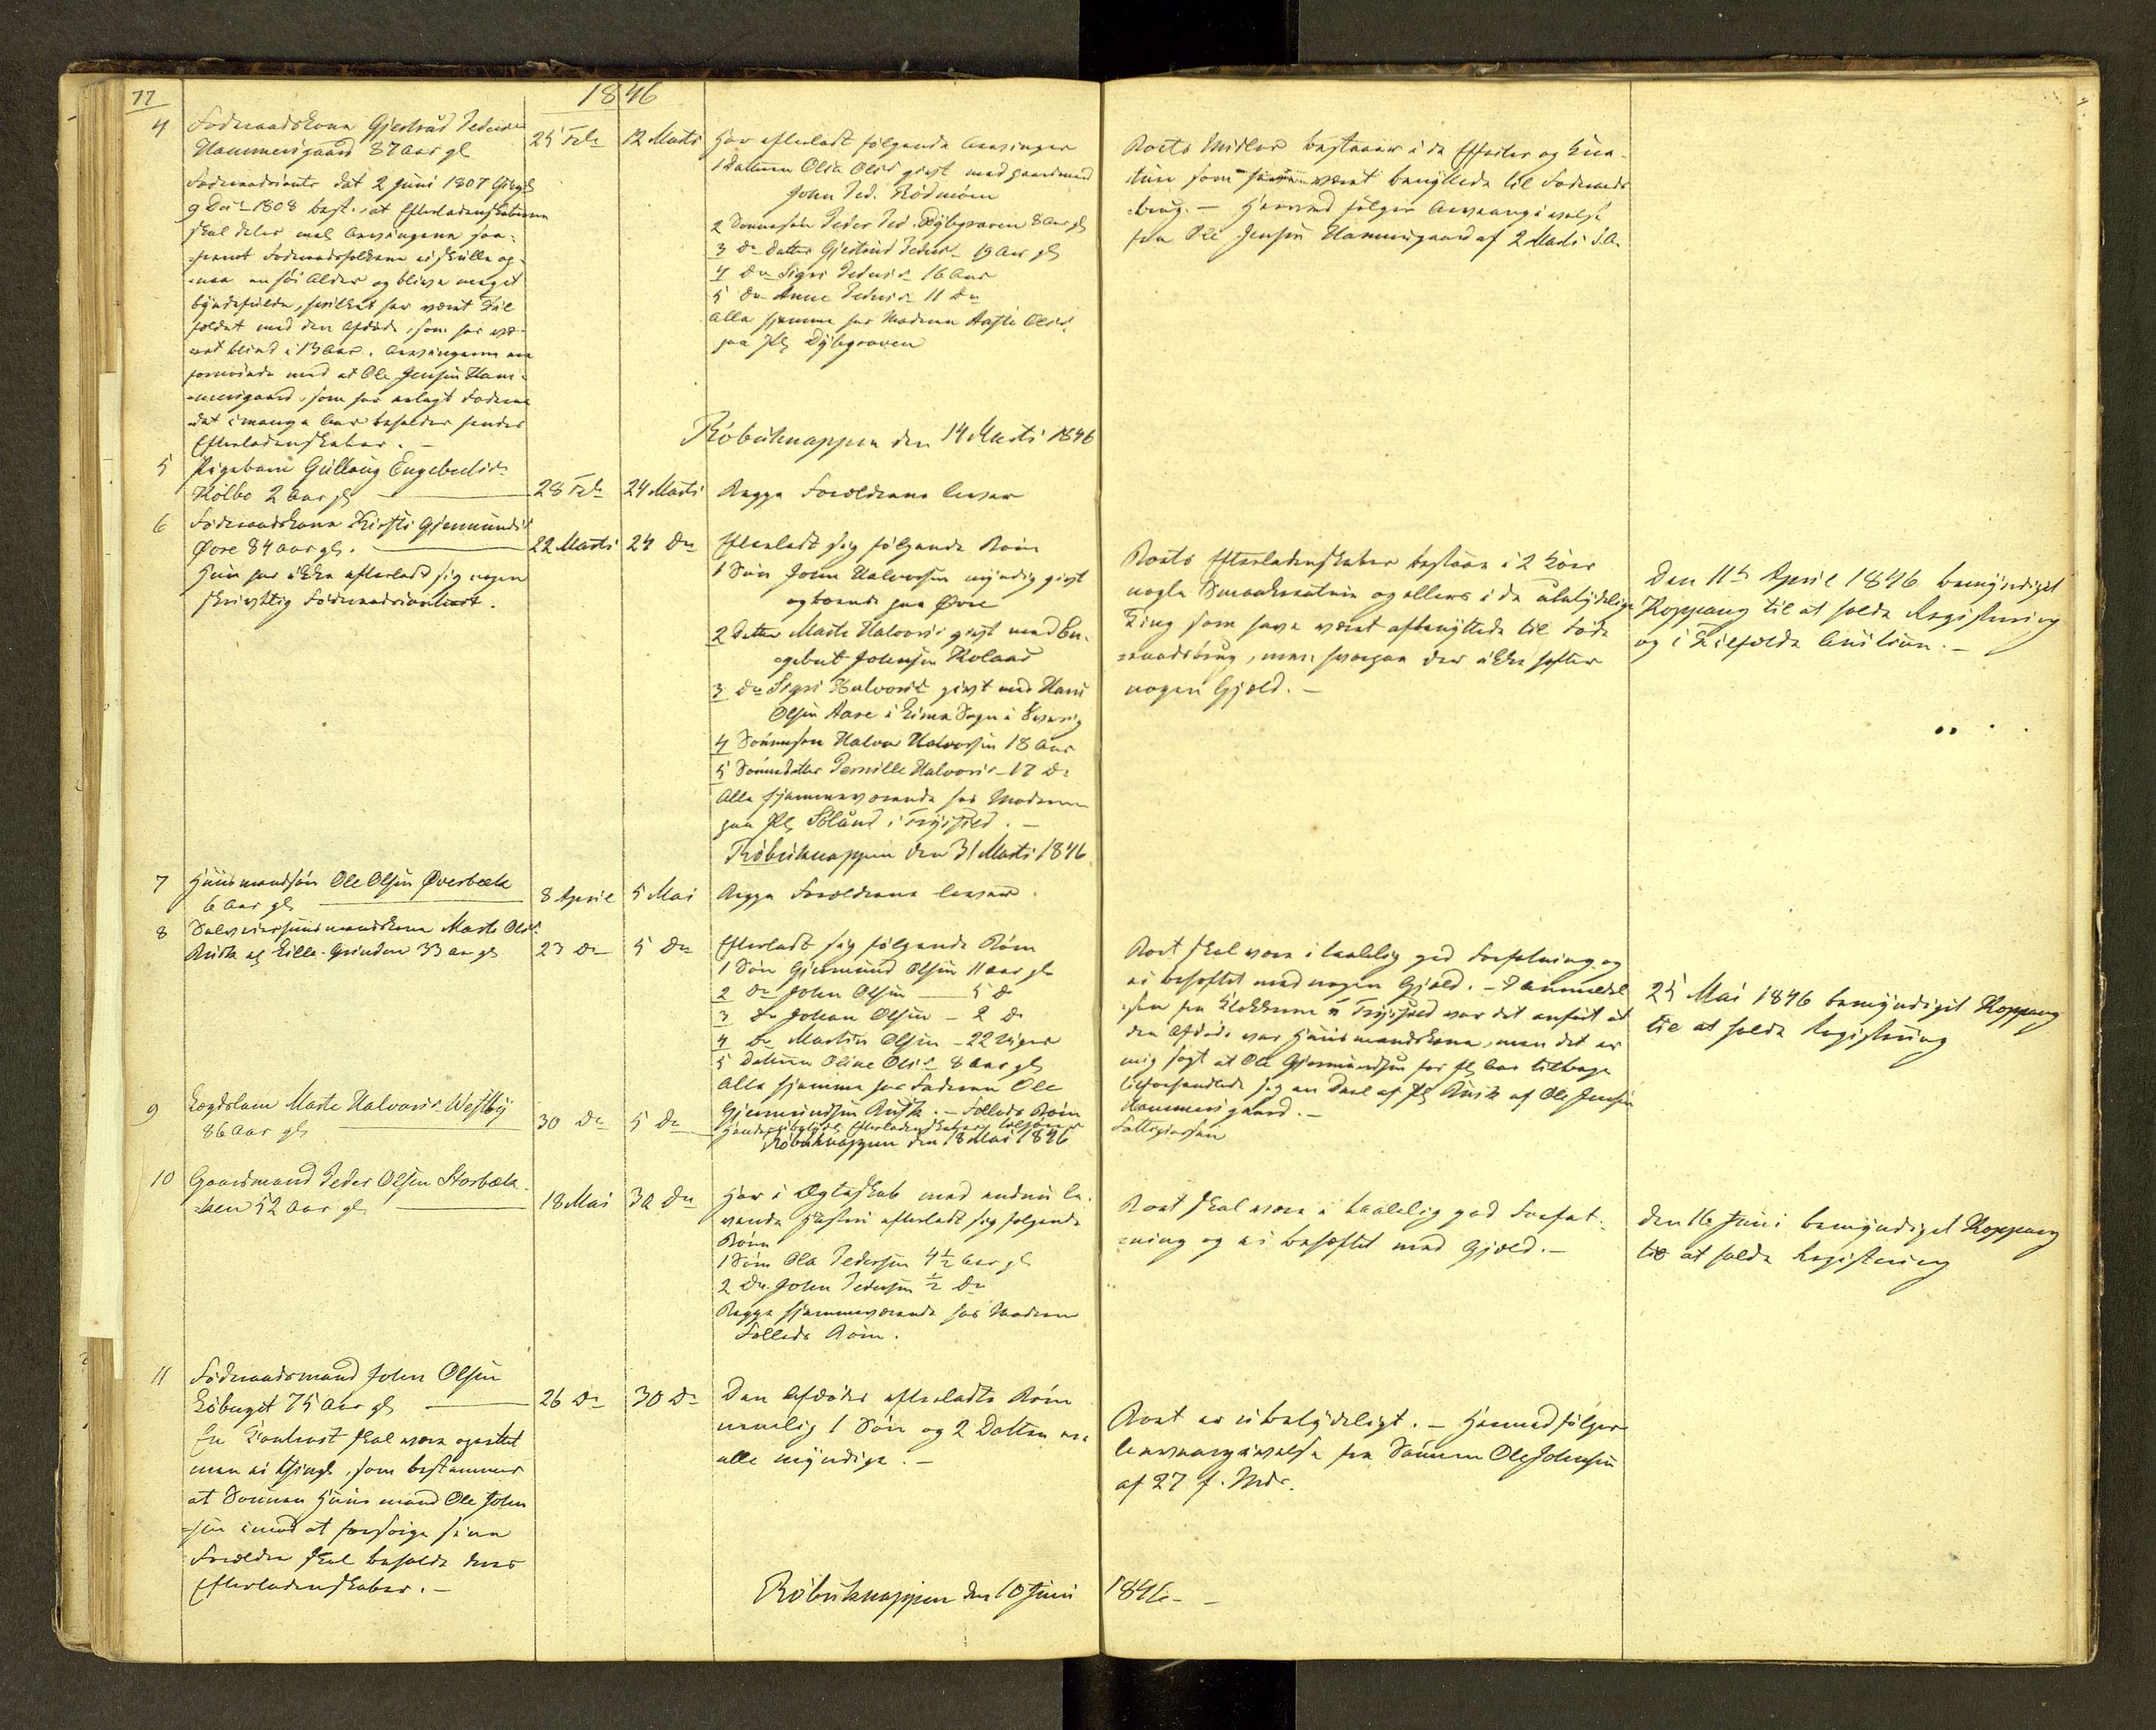 77
1846
4
Föderaadskone Gjertrud Peders
Hammersgaard 87 Aar gl
Föderaadsconts dat 2 Juni 1807 thingl
9 Dec 1808 best. at Efterladenskaberne
skal deles mel Arvingerne saa-
-fremt Föderaadsfolkene ei skulle op-
-naa en höi Alder og blive meget
byrdefulde, hvilket har været Til-
fældet med den Afdöde, som har væ-
-ret blind i 13 Aar. Arvingerne ere
fornöiede med at Ole Jensen Ham-
-mersgaard, som har udlagt Föderaa-
-det i mange Aar beholder hendes
Efterladenskaber. -
25 Feb
12 Marts
Har efterladt følgende Arvinger
1 Datteren Olia Olsd givt med gaardmand
John Ped. Rödmoen
2 Sönnesön Peder Ped. Dybgraven 8 Aar gl
3 do datter Gjertrud Peders 19 Aar gl
4 do Sigri Peders 16 Aar
5 do Anne Peders 11 do
alle hjemme hos Moderen Aaste Olsd
paa Pl Dybgraven
Boets Midler bestaaer i de Effecter og Krea-
-turer som været benyttede til Föderaads-
-brug. - Hermed følger Arveangivelse
fra Ole Jensen Hammersgaard af 2 Marts d.A.
Röbuknappen den 14 Marts 1846
5
Pigebarn Gullaug Engebrets
Kolbo 2 Aar gl
28 Feb
24 Marts
Begge Forældrene lever
6
Föderaadskone Kirsti Gjermunds
Øvre 84 Aar gl.
Hun har ikke efterladt sig nogen
skrivtlig Föderaadscontract.
22 Marts
24 do
Efterladt sig følgende Börn
1 Sön John Halvorsen myndig givt
og boende paa Øvre
2 Datter Marte Halvorsd givt med En-
-gebret Johnsen Kolaas
3 do Sigri Halvorsd givt med Hans
Olsen Aase i Lima Sogn i Sverig
4 Sönnesön Halvor Halvorsen 18 Aar
5 Sönnedatter Pernille Halvorsd 17 do
Alle hjemmeværende hos Moderen
paa Pl Sölund i Trysild. -
Röbuknappen den 31 Marts 1846
Boets Efterladenskaber bestaae i 2 Köer
nogle Smaakreature og ellers i de ubetydelige
Ting som have været afbenyttede til Föde-
-raadsbrug, men hvorpaa der ikke hefter
nogen Gjeld. -
Den 11te April 1846 bemyndiget
Koppang til at holde Registrering
og i Tilfælde Auction. -
7
Huusmandsön Ole Olsen Øverbæk
6 Aar gl
8 April
5 Mai
Begge Forældrene lever
8
Selveierhuusmandskone Marte Olsd
Rusk af Lille-Grinden 33 Aar gl
23 do
5 do
Efterladt sig følgende Börn
1 Sön Gjermund Olsen 11 Aar gl
2 do John Olsen - 5 do
3 do Johan Olsen - 2 do
4 do Martin Olsen - 22 Uger
5 Datteren Oline Olsd 8 Aar gl
Alle hjemme hos Faderen Ole
Gjermundsen Rusk. - Fælleds Börn
Boet skal være i taalelig god Forfatning og
ei beheftet med nogen Gjeld. - I Anmeldel-
-sen fra Klokkeren i Trysild var det anført at
den Afdöde var Huusmandskone, men det er
mig sagt at Ole Gjermundsen for fl Aar tilbage
tilforhandlede sig en Deel af Pl Rusk af Ole Jensen
Hammersgaard. -
25 Mai 1846 bemyndiget Koppang
til at holde Registrering
9
Lægdslem Marte Halvorsd Westby
86 Aar gl
30 do
5 do
Hendes Efterladenskaber tilhører
Fattigkassen
Röbuknappen den 18 Mai 1846
10
Gaardmand Peder Olsen Storbæk-
-ken 52 Aar gl
18 Mai
30 do
Har i Ægteskab med endnu le-
vende Hustru efterladt sig følgende
Börn
1 Sön Ole Pedersen 4½ Aar gl
2 do John Pedersen ½ do
Begge hjemmeværende hos Moderen
Fælleds Börn.
Boet skal være i taalelig god Forfat-
-ning og ei beheftet med Gjeld. -
Den 16 Juni bemyndiget Koppang
til at holde Registrering
11
Föderaadsmand John Olsen
Löberget 75 Aar gl
En Contract skal være oprettet
men ei thingl, som bestemmer
at Sönnen Huusmand Ole John-
-sen imod at forsörge sine
Forældre skal beholde deres
Efterladenskaber. -
26 do
30 do
Den Afdödes efterladte Börn
nemlig 1 Sön og 2 Döttre ere
alle myndige. -
Boet er ubetydeligt. - Hermed følger
Arveangivelse fra Sönnen Ole Johnsen
af 27 f. Mdr.
Röbuknappen den 10 Juni 1846 -